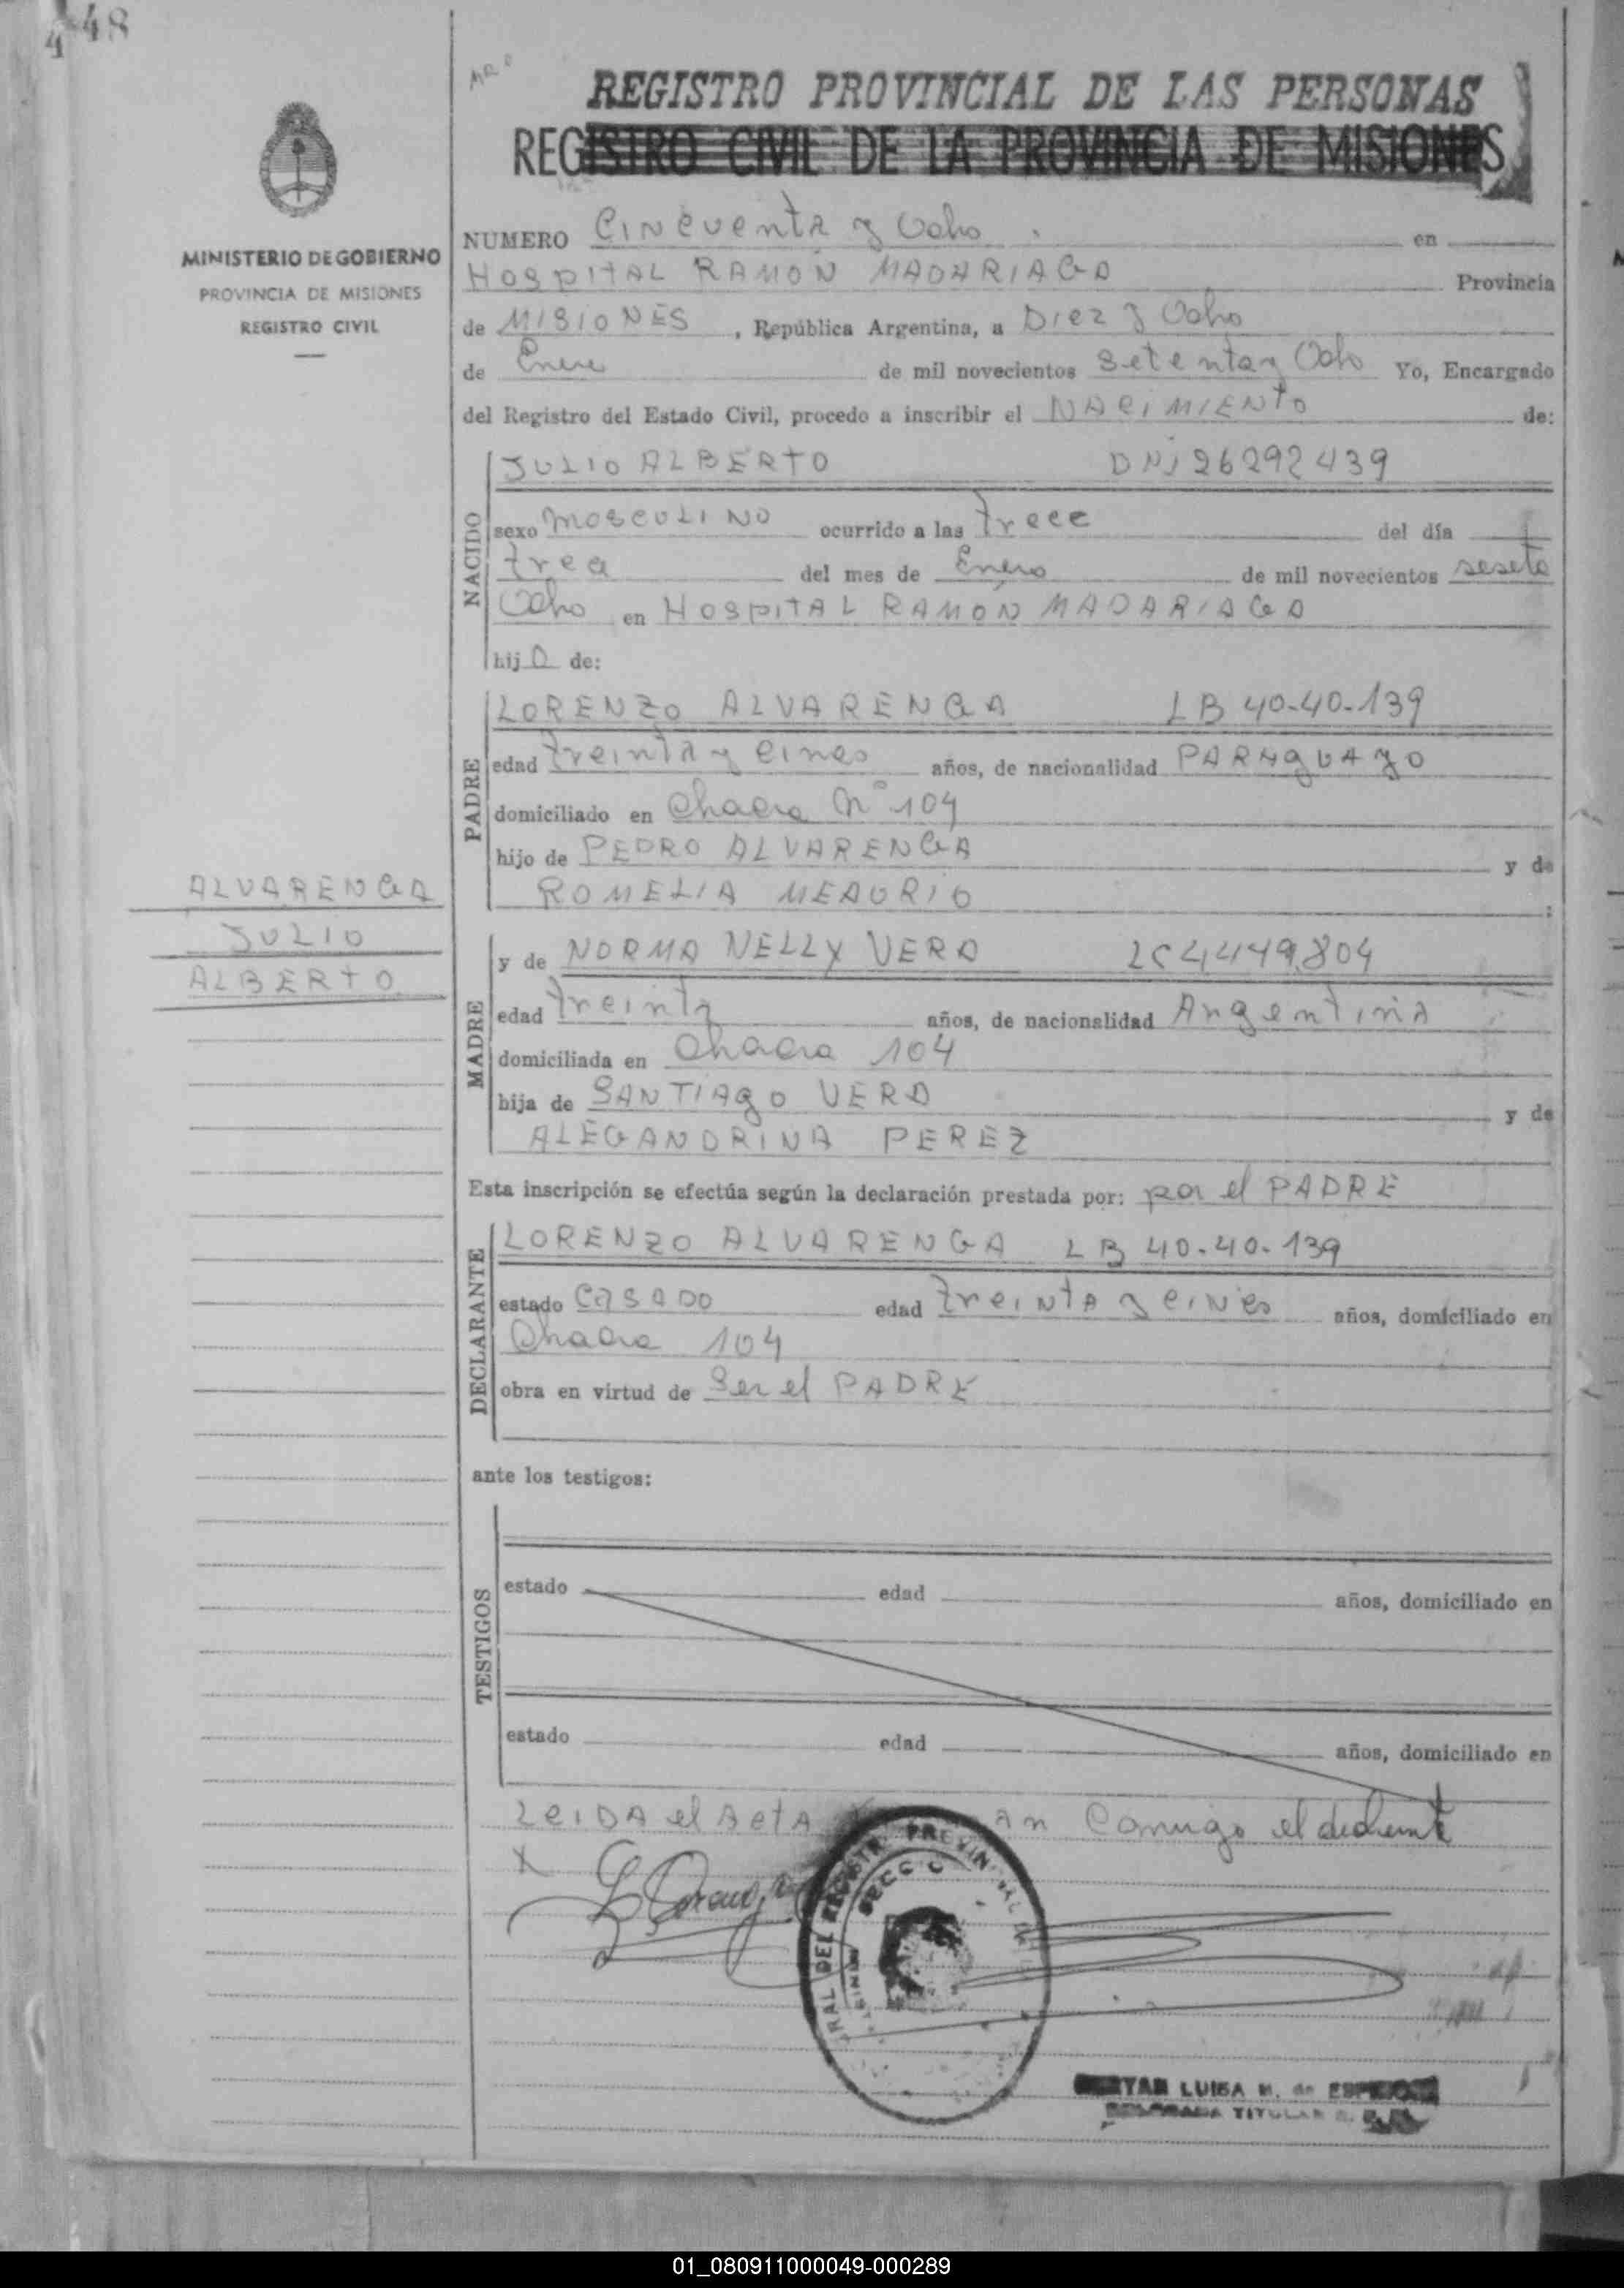 448
REGISTRO PROVINCIAL DE LAS PERSONAS
REGISTRO CIVIL DE LA PROVINCIA DE MISIONES
MINISTERIO DE GOBIERNO
PROVINCIA DE MISIONES
REGISTRO CIVIL
NUMERO Cincuenta y Ocho en
HOSPITAL RAMÓN MADARIAGA Provincia
de MISIONES, República Argentina, a Diez y Ocho
de Enero de mil novecientos setenta y Ocho Yo, Encargado
del Registro del Estado Civil, procedo a inscribir el NACIMIENTO de:
NACIDO
JULIO ALBERTO DNI 26292439
sexo masculino ocurrido a las trece del día
trea del mes de Enero de mil novecientos
Ocho en HOSPITAL RAMÓN MADARIAGA
hijo de:
PADRE
LORENZO ALVARENGA LB 40-40-139
edad treinta y cinco años, de nacionalidad PARAGUAYO
domiciliado en Chacra Nº 104
hijo de PEDRO ALVARENGA y de
ROMELIA MEAURIO ;
ALVARENGA
JULIO
ALBERTO
MADRE
y de NORMA NELLY VERA LC 4.449.804
edad treinta años, de nacionalidad Argentina
domiciliada en Chacra 104
hija de SANTIAGO VERA y de
ALEGANDRINA PEREZ
Esta inscripción se efectúa según la declaración prestada por: por el PADRE
DECLARANTE
LORENZO ALVARENGA LB 40.40.139
estado CASADO edad treinta y cinco años, domiciliado en
Chacra 104
obra en virtud de Ser el PADRE
ante los testigos:
TESTIGOS
estado edad años, domiciliado en
estado edad años, domiciliado en
LEIDA el Acta an Conmigo el
X
RAL DEL REGISTR PROVINCIAL DE
SECCIO
LUISA M. de
TITULAR
01_080911000049-000289